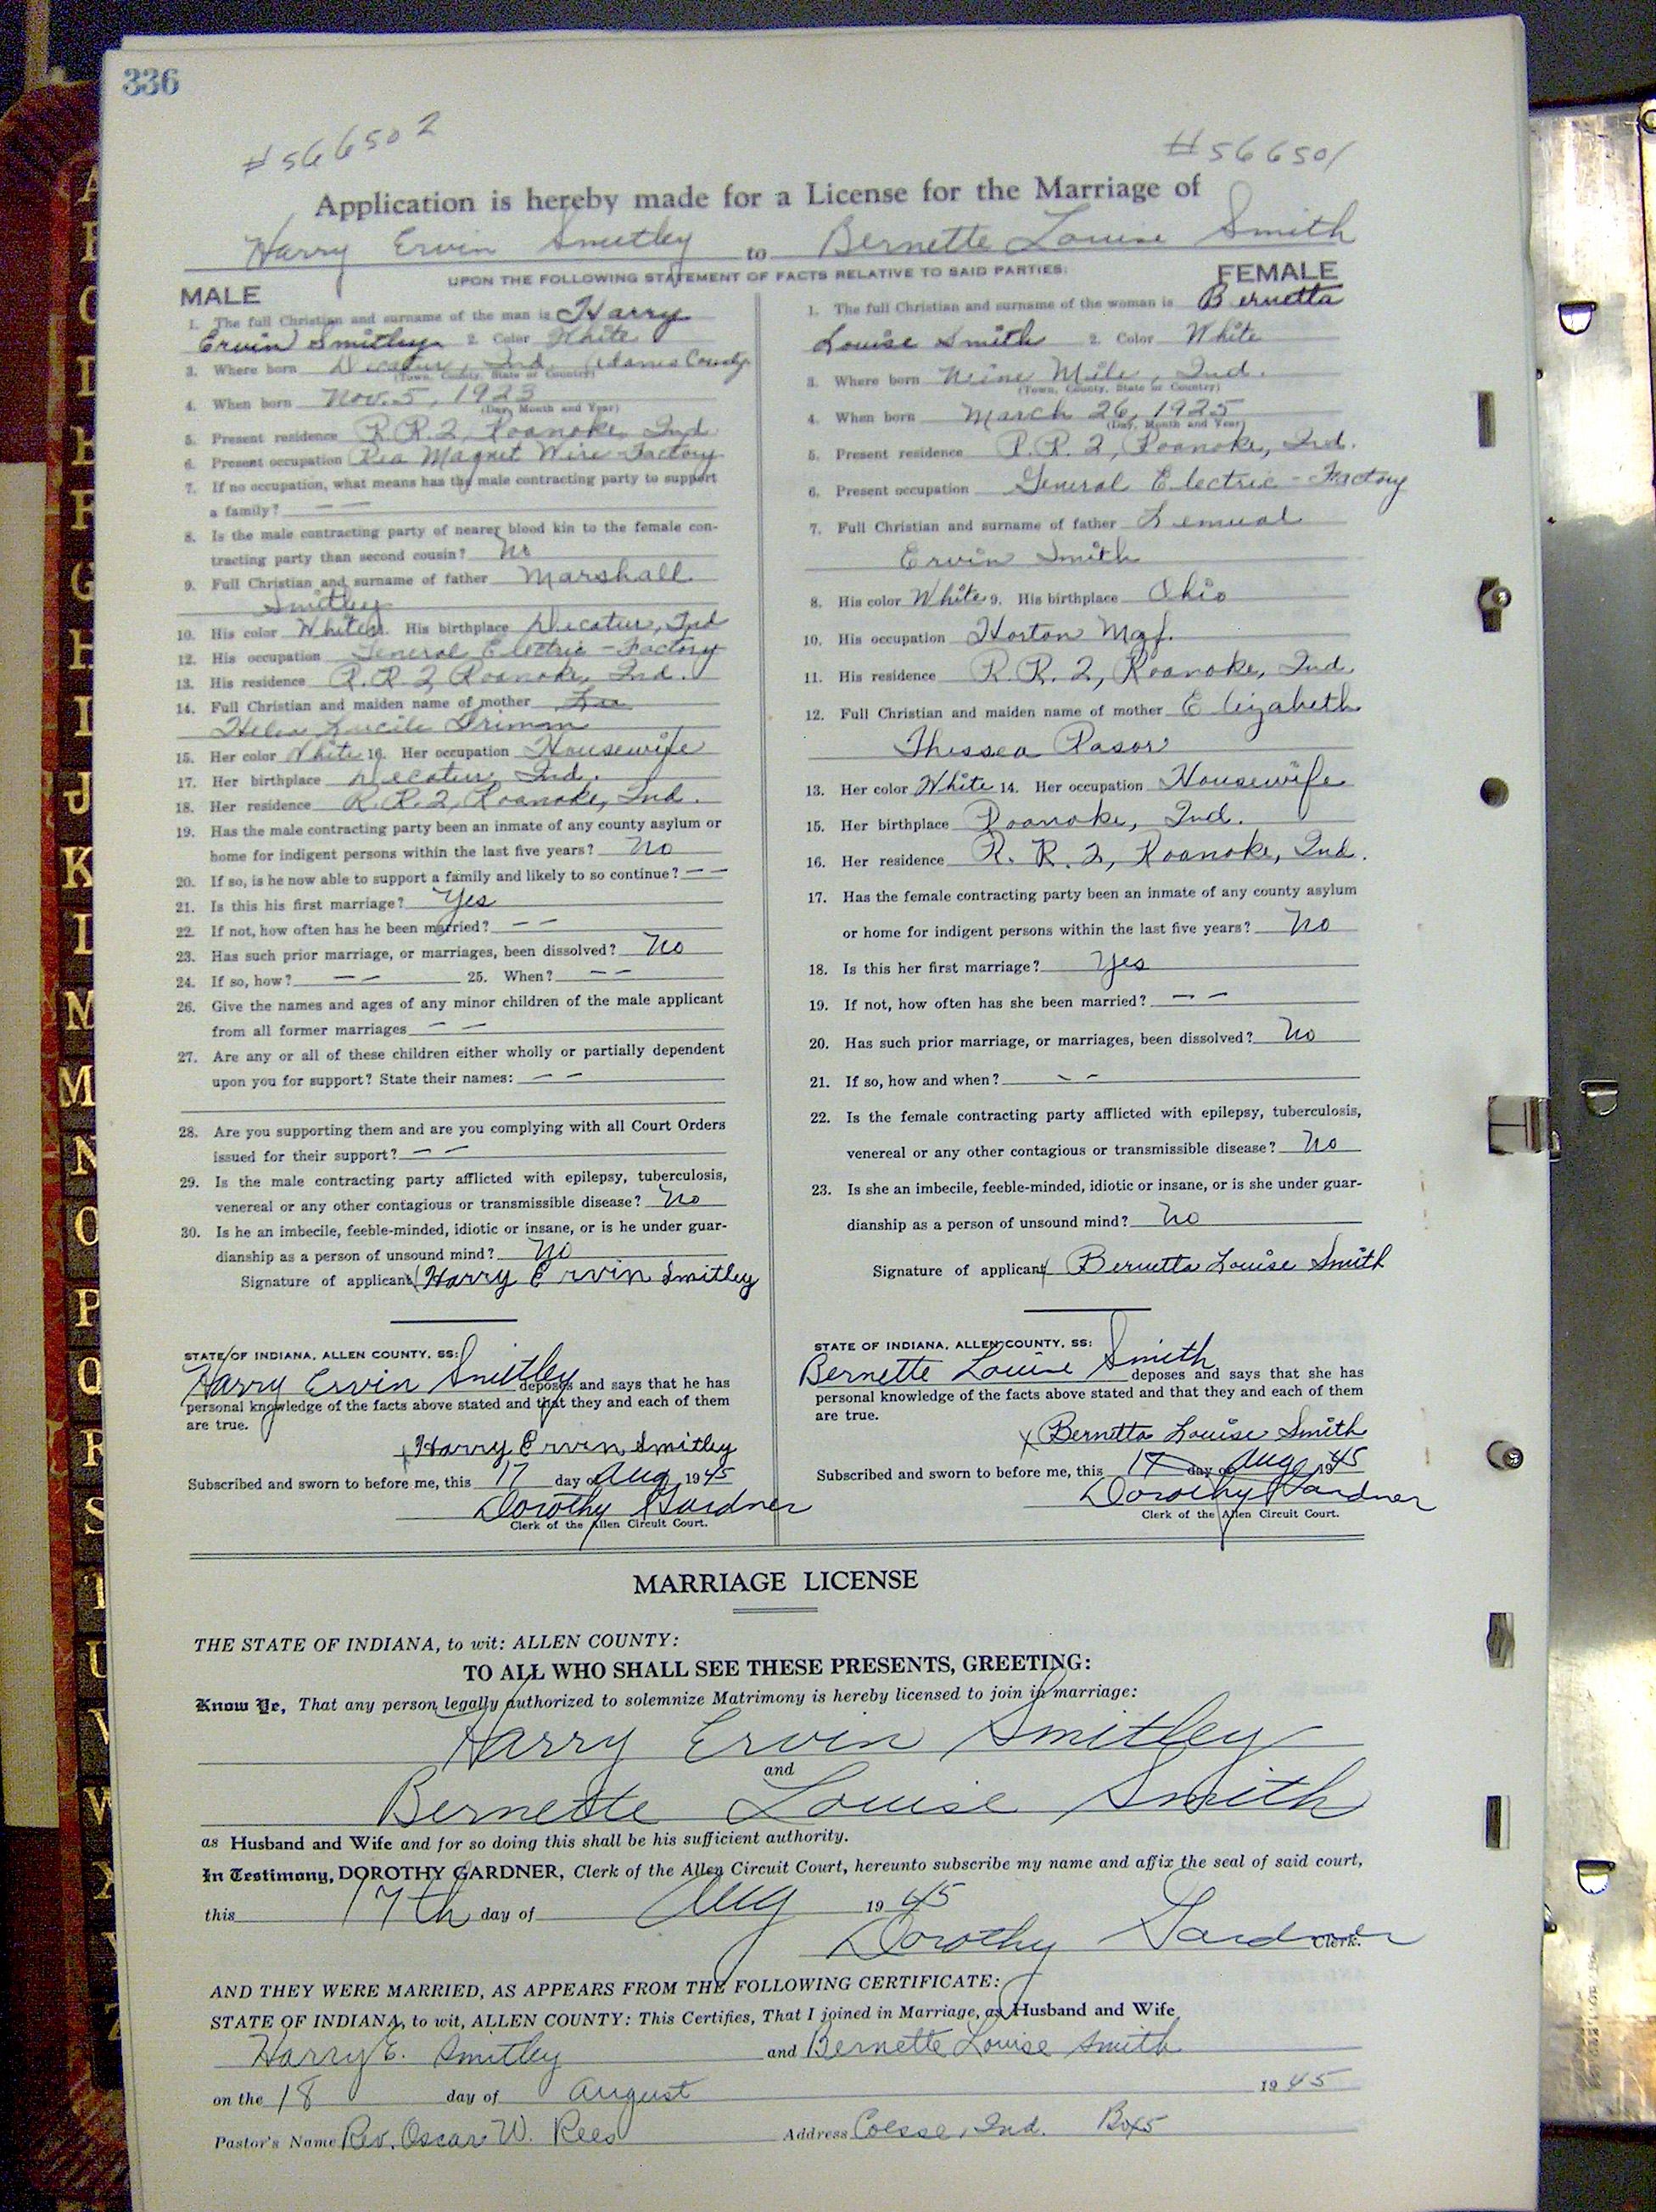 336
#566502
#566501
Application is hereby made for a License for the Marriage of
Harry Ervin Smitley to Bernette Louise Smith
UPON THE FOLLOWING STATEMENT OF FACTS RELATIVE TO SAID PARTIES:
MALE
1. The full Christian and surname of the man is Harry
Ervin Smitley 2. Color White
3. Where born Decatur, Ind. (Adams County)
(Town, County, State or Country)
4. When born Nov. 5, 1923
(Day, Month and Year)
5. Present residence R.R.2, Roanoke, Ind.
6. Present occupation Rea Magnet Wire-Factory
7. If no occupation, what means has the male contracting party to support
a family? — —
8. Is the male contracting party of nearer blood kin to the female con-
tracting party than second cousin? No
9. Full Christian and surname of father Marshall
Smitley
10. His color White 11. His birthplace Decatur, Ind
12. His occupation General Electric - Factory
13. His residence R.R.2, Roanoke, Ind.
14. Full Christian and maiden name of mother
Helen Lucile
15. Her color White 16. Her occupation Housewife
17. Her birthplace Decatur, Ind.
18. Her residence R.R.2, Roanoke, Ind.
19. Has the male contracting party been an inmate of any county asylum or
home for indigent persons within the last five years? No
20. If so, is he now able to support a family and likely to so continue? — —
21. Is this his first marriage? Yes
22. If not, how often has he been married? — —
23. Has such prior marriage, or marriages, been dissolved? No
24. If so, how? — — 25. When? — —
26. Give the names and ages of any minor children of the male applicant
from all former marriages — —
27. Are any or all of these children either wholly or partially dependent
upon you for support? State their names: — —
28. Are you supporting them and are you complying with all Court Orders
issued for their support? — —
29. Is the male contracting party afflicted with epilepsy, tuberculosis,
venereal or any other contagious or transmissible disease? No
30. Is he an imbecile, feeble-minded, idiotic or insane, or is he under guar-
dianship as a person of unsound mind? No
Signature of applicant Harry Ervin Smitley
STATE OF INDIANA, ALLEN COUNTY, SS:
Harry Ervin Smitley deposes and says that he has
personal knowledge of the facts above stated and that they and each of them
are true.
x Harry Ervin Smitley
Subscribed and sworn to before me, this 17 day of Aug 1945
Dorothy Gardner
Clerk of the Allen Circuit Court.
FEMALE
1. The full Christian and surname of the woman is Bernetta
Louise Smith 2. Color White
3. Where born Nine Mile, Ind.
(Town, County, State or Country)
4. When born March 26, 1925
(Day, Month and Year)
5. Present residence R.R. 2, Roanoke, Ind.
6. Present occupation General Electric - Factory
7. Full Christian and surname of father Lemual
Ervin Smith
8. His color White 9. His birthplace Ohio
10. His occupation Horton Mgf.
11. His residence R.R. 2, Roanoke, Ind.
12. Full Christian and maiden name of mother Elizabeth
13. Her color White 14. Her occupation Housewife
15. Her birthplace Roanoke, Ind.
16. Her residence R. R. 2, Roanoke, Ind.
17. Has the female contracting party been an inmate of any county asylum
or home for indigent persons within the last five years? No
18. Is this her first marriage? Yes
19. If not, how often has she been married? — —
20. Has such prior marriage, or marriages, been dissolved? No
21. If so, how and when? — —
22. Is the female contracting party afflicted with epilepsy, tuberculosis,
venereal or any other contagious or transmissible disease? No
23. Is she an imbecile, feeble-minded, idiotic or insane, or is she under guar-
dianship as a person of unsound mind? No
Signature of applicant x Bernetta Louise Smith
STATE OF INDIANA, ALLEN COUNTY, SS:
Bernette Louise Smith deposes and says that she has
personal knowledge of the facts above stated and that they and each of them
are true.
x Bernetta Louise Smith
Subscribed and sworn to before me, this 17 day of Aug 1945
Dorothy Gardner
Clerk of the Allen Circuit Court.
MARRIAGE LICENSE
THE STATE OF INDIANA, to wit: ALLEN COUNTY:
TO ALL WHO SHALL SEE THESE PRESENTS, GREETING:
Know Ye, That any person legally authorized to solemnize Matrimony is hereby licensed to join in marriage:
Harry Ervin Smitley
and
Bernette Louise Smith
as Husband and Wife and for so doing this shall be his sufficient authority.
In Testimony, DOROTHY GARDNER, Clerk of the Allen Circuit Court, hereunto subscribe my name and affix the seal of said court,
this 17th day of Aug 1945
Dorothy Gardner Clerk.
AND THEY WERE MARRIED, AS APPEARS FROM THE FOLLOWING CERTIFICATE:
STATE OF INDIANA, to wit, ALLEN COUNTY: This Certifies, That I joined in Marriage, as Husband and Wife
Harry E. Smitley and Bernette Louise Smith
on the 18 day of August 1945
Pastor's Name Rev. Oscar W. Rees Address Coesse, Ind. Box 5